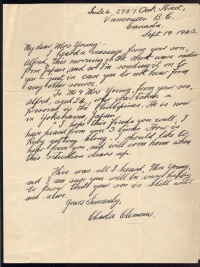 Suite 4, 2707 Oak Street,
Vancouver B.C.
Canada,
Sept 19, 1943.
My dear Mrs Young:-
I heard a message from your son,
Alfred, this morning on the short wave radio
from Japan and am sending it on to
you - just in case you do not hear from
any other source.
To Mr & Mrs Young, from your son,
Alfred, aged 26, who was taken a
prisoner in the Philippines. He is now
in Yokohama Japan.
I hope this finds you well, I
have heard from you 3 times. How is
Ruby getting along. I should like to
hear from you, and will come home when
this situation clears up.
This was all I heard, Mrs Young,
and I am sure you will be very happy
to know that your son is still well
and alive.
Yours Sincerely,
Charlie Clemons.